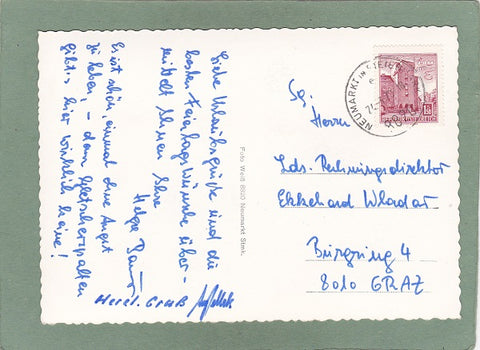 Liebe Urlaubsgrüße und die
besten Feiertagswünsche über-
mittelt Ihnen Ihre
Helga
Es ist schön, einmal ohne Angst
zu leben, – denn Gletscherspalten
gibt's hier wirklich keine!
Herzl. Gruß
Foto Weiß 8820 Neumarkt Stmk.
NEUMARKT IN STEIERM
REPUBLIK ÖSTERREICH
Sg.
Herrn
Lds. Rechnungsdirektor
Ekkehard Wladar
Burgring 4
8010 GRAZ